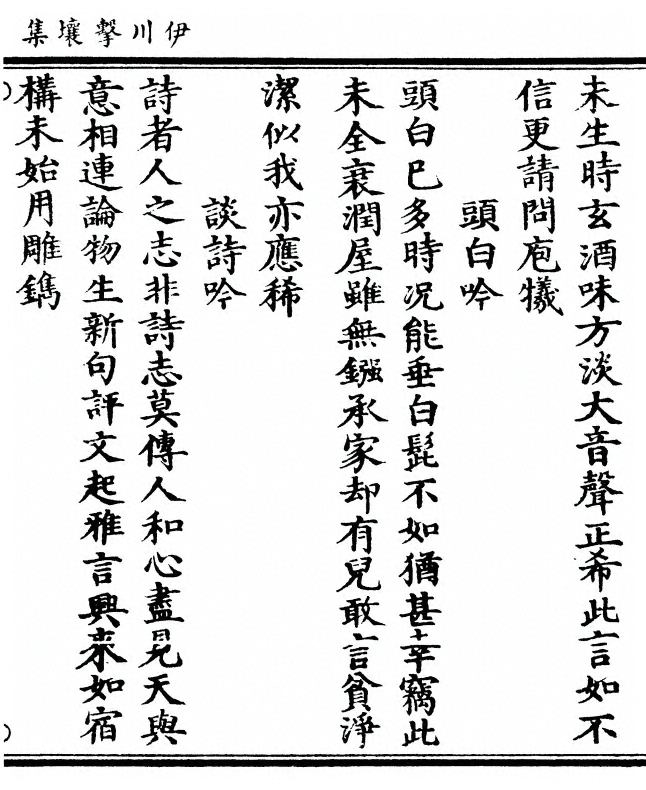 伊川擊壤集
未生時玄酒味方淡大音聲正希此言如不
信更請問庖犧
頭白吟
頭白已多時况能垂白髭不如猶甚幸竊此
未全衰潤屋雖無鏹承家却有兒敢言貧淨
潔似我亦應稀
談詩吟
詩者人之志非詩志莫傳人和心盡見天與
意相連論物生新句評文起雅言興來如宿
構未始用雕鐫